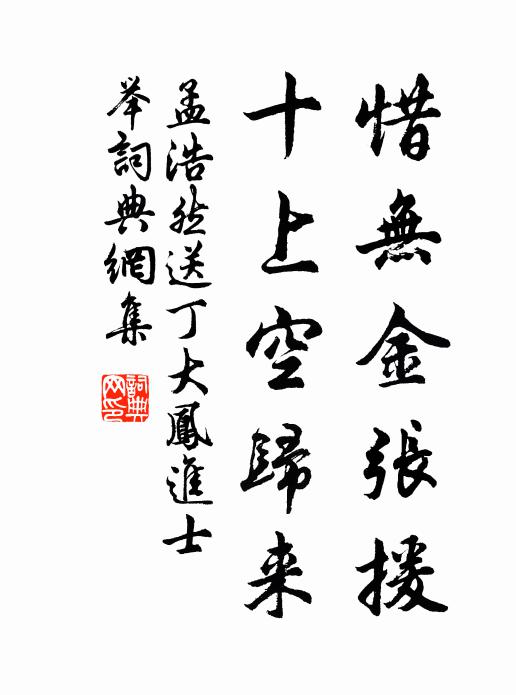 惜無金張援
十上空歸来
孟浩然送丁大鳳進士
举詞典網集
詞典网印